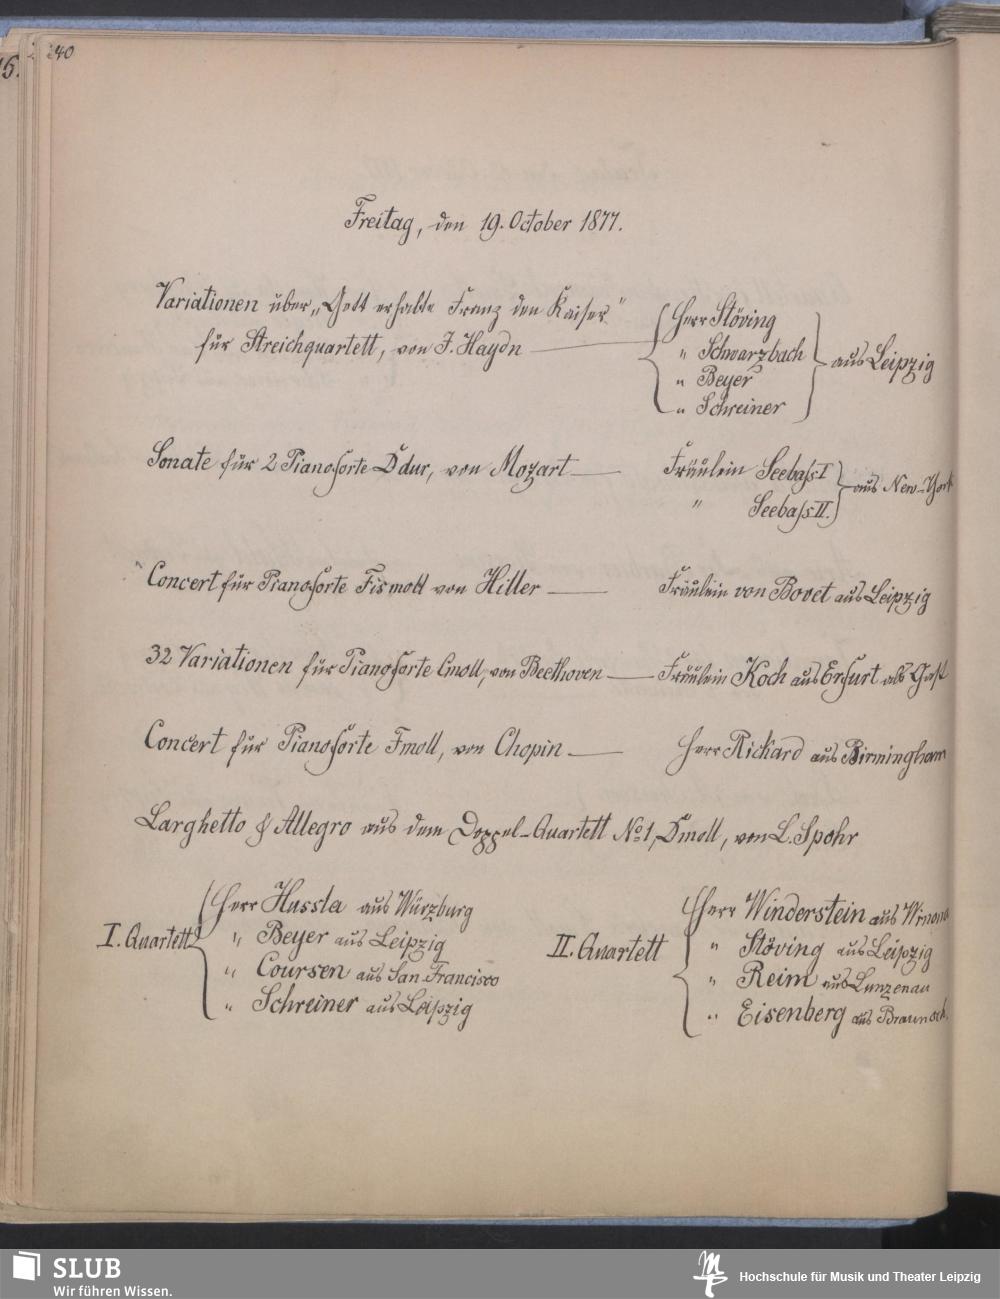 240
Freitag, den 19. October 1877.
Variationen über „Gott erhalte Franz den Kaiser"
für Streichquartett, von J. Haydn — Herr Stöving
" Schwarzbach
" Beyer
" Schreiner
aus Leipzig
Sonate für 2 Pianoforte Ddur, von Mozart — Fräulein Seebass I
" Seebass II.
aus New-York
Concert für Pianoforte Fismoll von Hiller — Fräulein von Bovet aus Leipzig
32 Variationen für Pianoforte Cmoll, von Beethoven — Fräulein Koch aus Erfurt als Gast
Concert für Pianoforte Fmoll, von Chopin — Herr Rickard aus Birmingham
Larghetto & Allegro aus dem Doppel-Quartett No 1, Dmoll, von L. Spohr
I. Quartett
Herr Hussla aus Würzburg
" Beyer aus Leipzig
" Coursen aus San Francisco
" Schreiner aus Leipzig
II. Quartett
Herr Winderstein aus Winona
" Stöving aus Leipzig
" Reim aus Lunzenau
" Eisenberg aus
SLUB
Wir führen Wissen.
Hochschule für Musik und Theater Leipzig